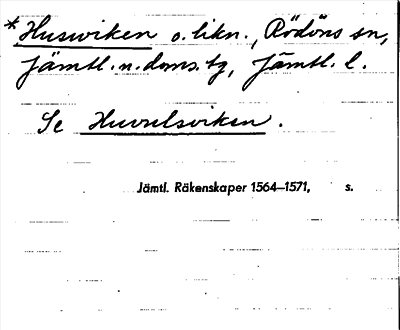 * Huswiken o. likn., Rödöns sn,
Jämtl. n. doms. tg, Jämtl. l.
Se Huvulsviken.
Jämtl. Räkenskaper 1564–1571, s.